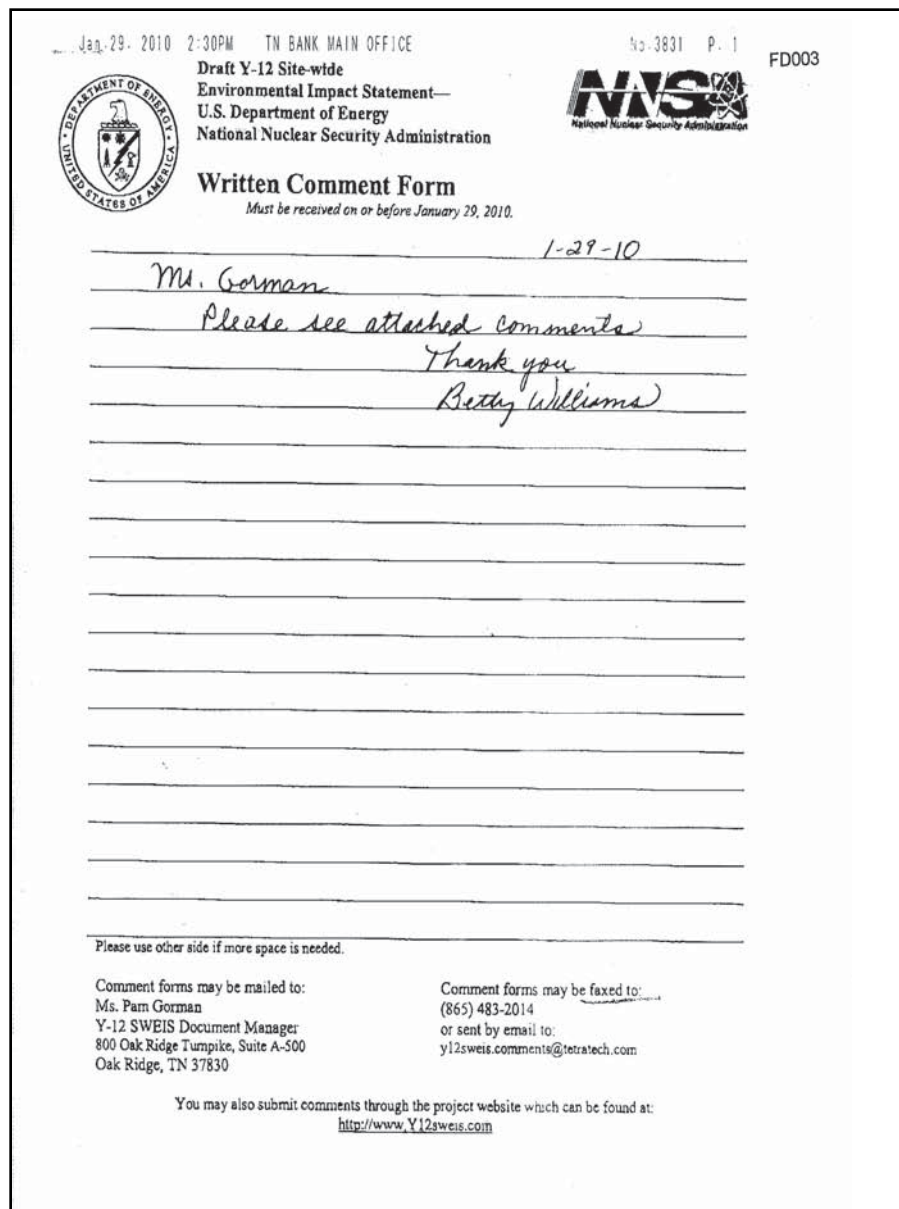 Jan. 29. 2010 2:30PM TN BANK MAIN OFFICE No. 3831 P. 1
FD003
Draft Y-12 Site-wide
Environmental Impact Statement—
U.S. Department of Energy
National Nuclear Security Administration
DEPARTMENT OF ENERGY
UNITED STATES OF AMERICA
NNSA
National Nuclear Security Administration
Written Comment Form
Must be received on or before January 29, 2010.
1-29-10
Ms. Gorman
Please see attached comments
Thank you
Betty Williams
Please use other side if more space is needed.
Comment forms may be mailed to:
Ms. Pam Gorman
Y-12 SWEIS Document Manager
800 Oak Ridge Turnpike, Suite A-500
Oak Ridge, TN 37830
Comment forms may be faxed to:
(865) 483-2014
or sent by email to:
y12sweis.comments@tetratech.com
You may also submit comments through the project website which can be found at:
http://www.Y12sweis.com